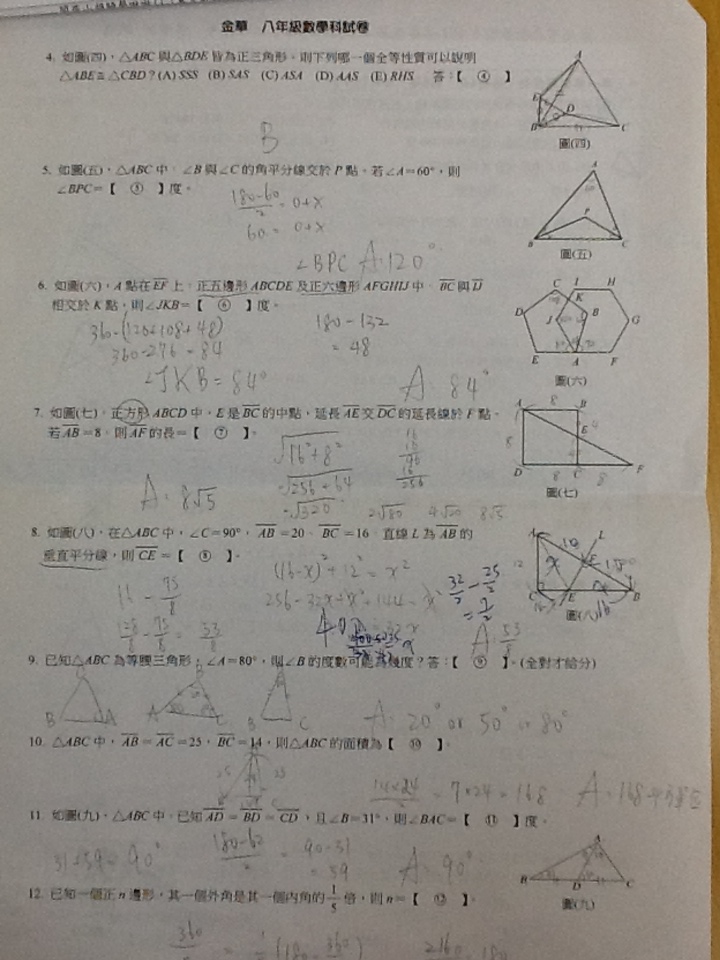 金華 八年級數學科試卷
4. 如圖(四)，△ABC 與△BDE 皆為正三角形，則下列哪一個全等性質可以說明
△ABE≅△CBD？(A) SSS (B) SAS (C) ASA (D) AAS (E) RHS 答：【 ④ 】
B
圖(四)
5. 如圖(五)，△ABC 中，∠B 與∠C 的角平分線交於 P 點。若∠A＝60°，則
∠BPC＝【 ⑤ 】度。
180-60/2 = 0+x
60 = 0+x
∠BPC A:120°
圖(五)
6. 如圖(六)，A 點在 EF 上，正五邊形 ABCDE 及正六邊形 AFGHIJ 中，BC 與 IJ
相交於 K 點，則∠JKB＝【 ⑥ 】度。
360-(120+108+48)
360-276=84
180-132
=48
∠JKB=84°
A: 84°
圖(六)
7. 如圖(七)，正方形 ABCD 中，E 是 BC 的中點，延長 AE 交 DC 的延長線於 F 點。
若 AB＝8，則 AF 的長＝【 ⑦ 】。
√16²+8²
√256+64
=√320
2√80 4√20 8√5
A: 8√5
圖(七)
8. 如圖(八)，在△ABC 中，∠C＝90°，AB＝20，BC＝16，直線 L 為 AB 的
垂直平分線，則 CE＝【 ⑧ 】。
(16-x)²+12²=x²
圖(八)
9. 已知△ABC 為等腰三角形，∠A＝80°，則∠B 的度數可能為幾度？答：【 ⑨ 】。(全對才給分)
A: 20° or 50° or 80°
10. △ABC 中，AB＝AC＝25，BC＝14，則△ABC 的面積為【 ⑩ 】。
14×24/2 = 7×24=168
11. 如圖(九)，△ABC 中，已知 AD＝BD＝CD，且∠B＝31°，則∠BAC＝【 ⑪ 】度。
31+59=90°
180-62/2 = 90-31
=59
A: 90°
圖(九)
12. 已知一個正 n 邊形，其一個外角是其一個內角的 1/5 倍，則 n＝【 ⑫ 】。